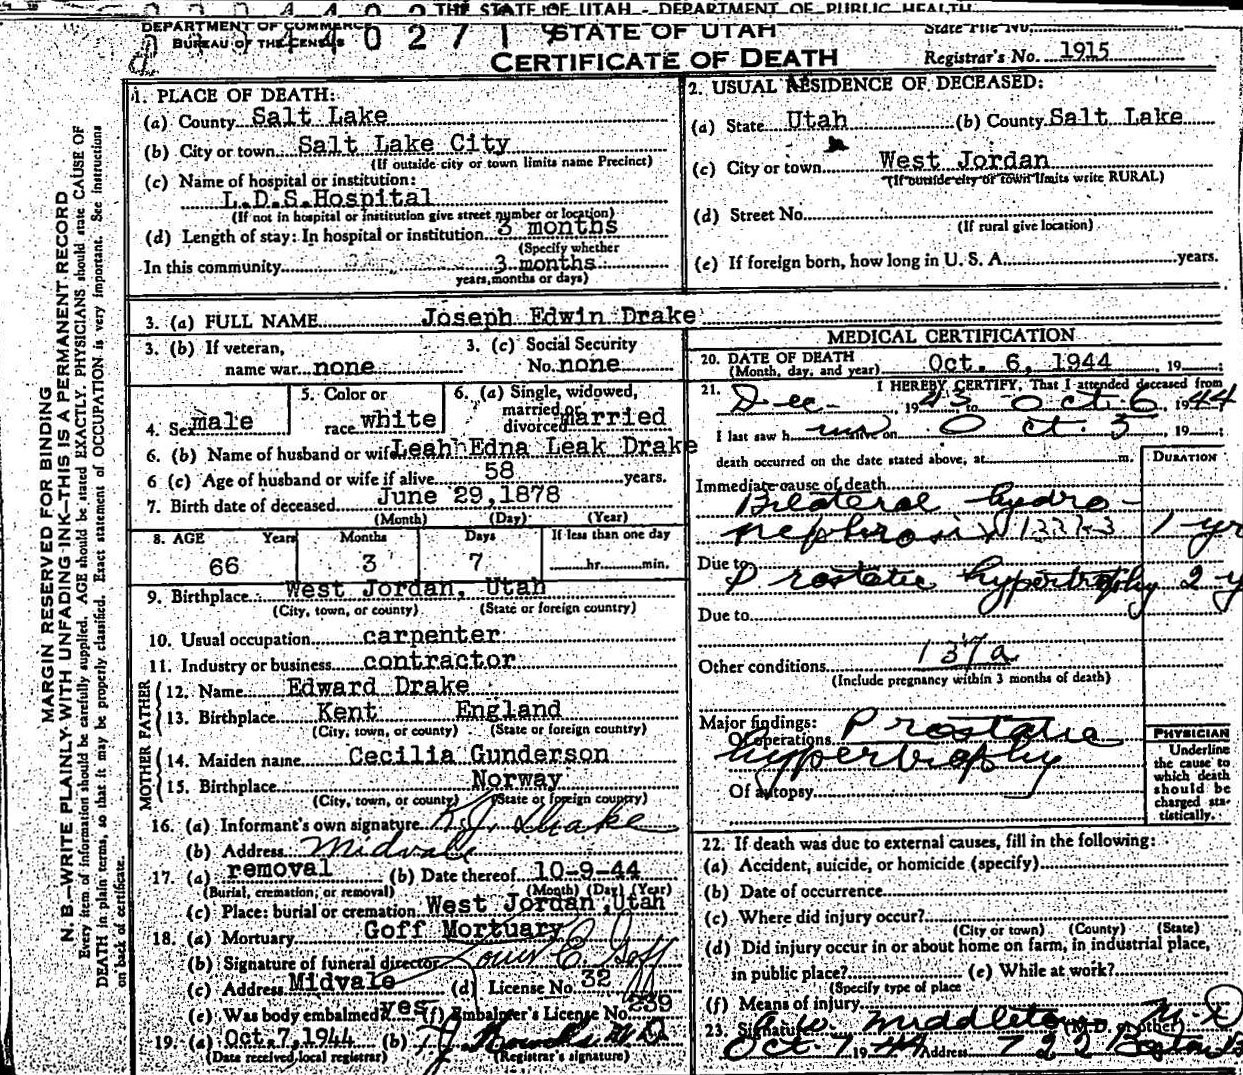 THE STATE OF UTAH - DEPARTMENT OF PUBLIC HEALTH
DEPARTMENT OF COMMERCE
BUREAU OF THE CENSUS
STATE OF UTAH
CERTIFICATE OF DEATH
State File No.
Registrar's No. 1915
MARGIN RESERVED FOR BINDING
N. B.—WRITE PLAINLY WITH UNFADING INK—THIS IS A PERMANENT RECORD
Every item of information should be carefully supplied. AGE should be stated EXACTLY. PHYSICIANS should state CAUSE OF
DEATH in plain terms, so that it may be properly classified. Exact statement of OCCUPATION is very important. See instructions
on back of certificate.
1. PLACE OF DEATH:
(a) County Salt Lake
(b) City or town Salt Lake City
(If outside city or town limits name Precinct)
(c) Name of hospital or institution:
L.D.S. Hospital
(If not in hospital or institution give street number or location)
(d) Length of stay: In hospital or institution 3 months
(Specify whether
In this community 3 months
years, months or days)
2. USUAL RESIDENCE OF DECEASED:
(a) State Utah (b) County Salt Lake
(c) City or town West Jordan
(If outside city or town limits write RURAL)
(d) Street No.
(If rural give location)
(e) If foreign born, how long in U. S. A. years.
3. (a) FULL NAME Joseph Edwin Drake
3. (b) If veteran, 3. (c) Social Security
name war none No. none
4. Sex male
5. Color or
race white
6. (a) Single, widowed,
married or
divorced Married
6. (b) Name of husband or wife Leah Edna Leak Drake
6 (c) Age of husband or wife if alive 58 years.
7. Birth date of deceased June 29, 1878
(Month) (Day) (Year)
8. AGE Years Months Days If less than one day
66 3 7 hr. min.
9. Birthplace West Jordan, Utah
(City, town, or county) (State or foreign country)
10. Usual occupation carpenter
11. Industry or business contractor
FATHER
12. Name Edward Drake
13. Birthplace Kent England
(City, town, or county) (State or foreign country)
MOTHER
14. Maiden name Cecilia Gunderson
15. Birthplace Norway
(City, town, or county) (State or foreign country)
16. (a) Informant's own signature Drake
(b) Address Midvale
17. (a) removal (b) Date thereof 10-9-44
(Burial, cremation, or removal) (Month) (Day) (Year)
(c) Place: burial or cremation West Jordan, Utah
18. (a) Mortuary Goff Mortuary
(b) Signature of funeral director E Goff
(c) Address Midvale (d) License No. 32
(e) Was body embalmed? yes (f) Embalmer's License No. 239
19. (a) Oct. 7, 1944 (b) M.D.
(Date received local registrar) (Registrar's signature)
MEDICAL CERTIFICATION
20. DATE OF DEATH Oct. 6, 1944 19
(Month, day, and year)
21. I HEREBY CERTIFY, That I attended deceased from
Dec - 1943 to Oct. 6 1944
I last saw h im alive on Oct. 5 19
death occurred on the date stated above, at m.
DURATION
Immediate cause of death
Bilateral hydro-
nephrosis 1 yr
Due to
Prostatic hypertrophy 2 y
Due to
137a
Other conditions
(Include pregnancy within 3 months of death)
Major findings:
Of operations Prostatic
hypertrophy
Of autopsy
PHYSICIAN
Underline
the cause to
which death
should be
charged sta-
tistically.
22. If death was due to external causes, fill in the following:
(a) Accident, suicide, or homicide (specify)
(b) Date of occurrence
(c) Where did injury occur?
(City or town) (County) (State)
(d) Did injury occur in or about home on farm, in industrial place,
in public place? (e) While at work?
(Specify type of place
(f) Means of injury
23. Signature Middleton M.D
(M.D. or other)
Oct. 7 1944 Address 722 Boston B